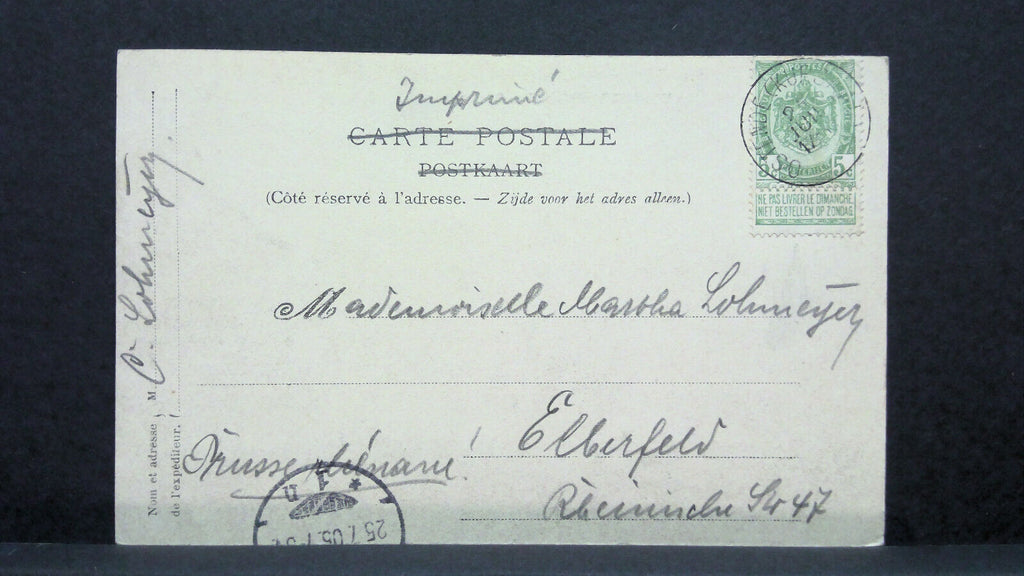 Imprimé
CARTE POSTALE
POSTKAART
(Côté réservé à l'adresse. — Zijde voor het adres alleen.)
5
NE PAS LIVRER LE DIMANCHE
NIET BESTELLEN OP ZONDAG
Mademoiselle Martha Lohmeyer
Elberfeld
Rheinische Str 47
Prusse rhénane!
Nom et adresse
de l'expéditeur.
M. C. Lohmeyer